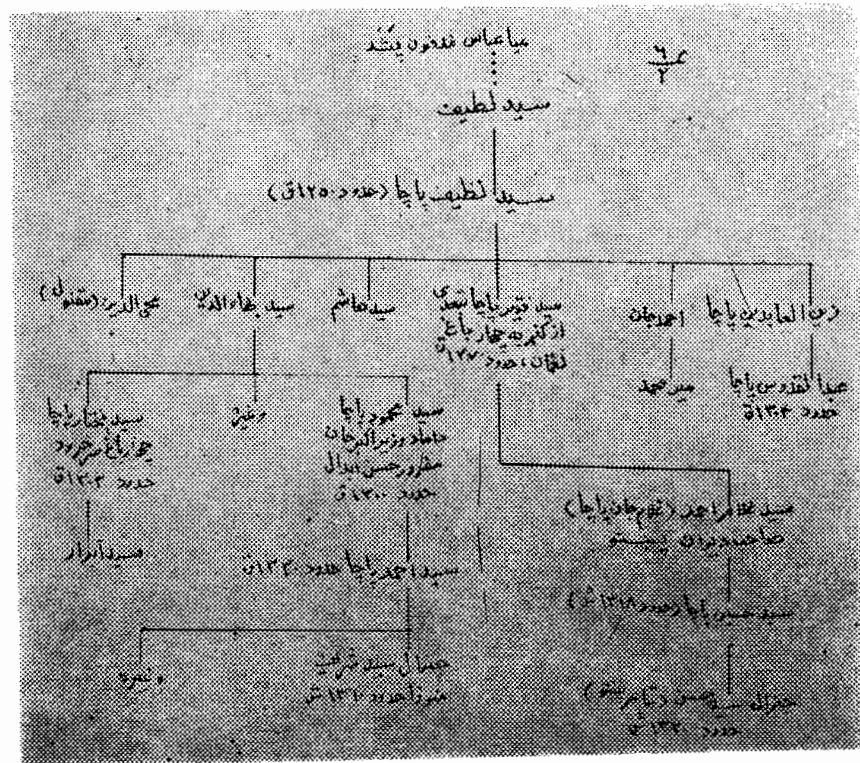 میا عباس غدفون پکتند
۶/۲
سید لطیف
سید لطیف پاچا (حدود ۱۲۵۰ق)
زین العابدین پاچا
احمد جان
سید فقیر پاچا
از کنر به چهار باغ
لغمان، حدود ۱۲۷۰ق
سید هاشم
سید بهاءالدین
محی الدین (مقتول)
عبدالقدوس پاچا
حدود ۱۳۰۴ق
میر صمد
سید محمود پاچا
داماد وزیر اکبر خان
مفرور حسن ابدال
حدود ۱۳۰۰ق
وغیره
سید مختار پاچا
چهار باغ سرخرود
حدود ۱۳۰۳ق
سید ابرار
سید غلام احمد (غلام جان پاچا)
صاحب دیوان پښتو
سید احمد پاچا حدود ۱۳۳۰ق
سید حسین پاچا (حدود ۱۳۱۸ش)
جنرال سید شریف
حدود ۱۳۱۰ش
وغیره
جنرال سید حسن
حدود ۱۳۲۰ش